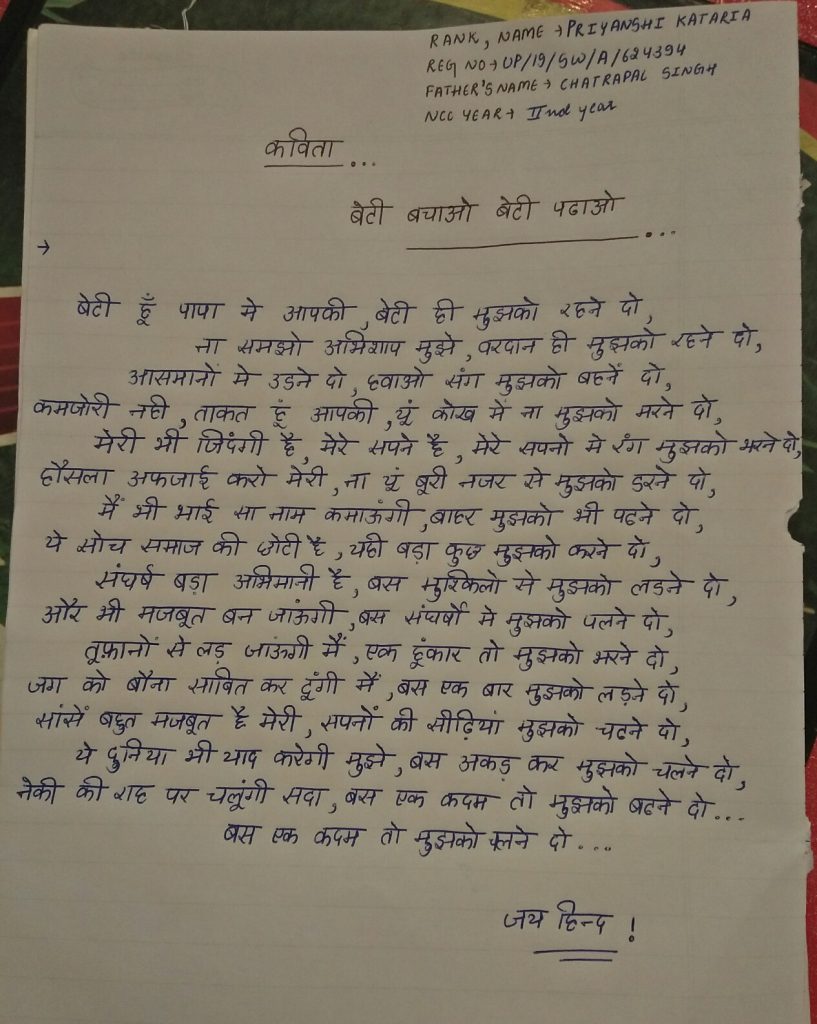 RANK, NAME → PRIYANSHI KATARIA
REG NO → UP/19/SW/A/624394
FATHER'S NAME → CHATRAPAL SINGH
NCC YEAR → IInd year
कविता...
बेटी बचाओ बेटी पढाओ
...
→
बेटी हूँ पापा मे आपकी, बेटी ही मुझको रहने दो,
ना समझो अभिशाप मुझे, वरदान ही मुझको रहने दो,
आसमानों मे उडने दो, हवाओ संग मुझको बहनें दो,
कमजोरी नही, ताकत हूं आपकी, यूं कोख में ना मुझको मरने दो,
मेरी भी जिदंगी है, मेरे सपने है, मेरे सपनो मे रंग मुझको भरने दो,
हौसला अफजाई करो मेरी, ना यूं बूरी नजर से मुझको डरने दो,
मैं भी भाई सा नाम कमाऊंगी, बाहर मुझको भी पढने दो,
ये सोच समाज की छोटी है, यही बड़ा कुछ मुझको करने दो,
संघर्ष बड़ा अभिमानी है, बस मुश्किलो से मुझको लडने दो,
और भी मजबूत बन जाऊंगी, बस संघर्षो मे मुझको पलने दो,
तूफानों से लड़ जाऊंगी मैं, एक हूंकार तो मुझको भरने दो,
जग को बौना साबित कर दूंगी मैं, बस एक बार मुझको लड़ने दो,
सांसें बहुत मजबूत है मेरी, सपनों की सीढ़ियां मुझको चढने दो,
ये दुनिया भी याद करेगी मुझे, बस अकड़ कर मुझको चलने दो,
नेकी की राह पर चलूंगी सदा, बस एक कदम तो मुझको बढने दो...
बस एक कदम तो मुझको चलने दो....
जय हिन्द !